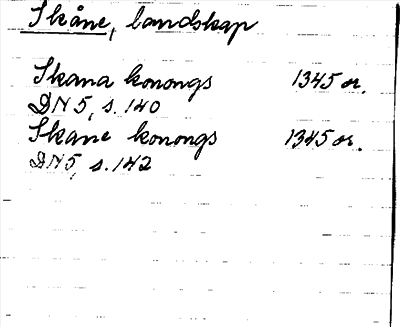 Skåne, landskap
Skana konongs 1345 or.
DN 5, s. 140
Skane konongs 1345 or.
DN 5, s. 142